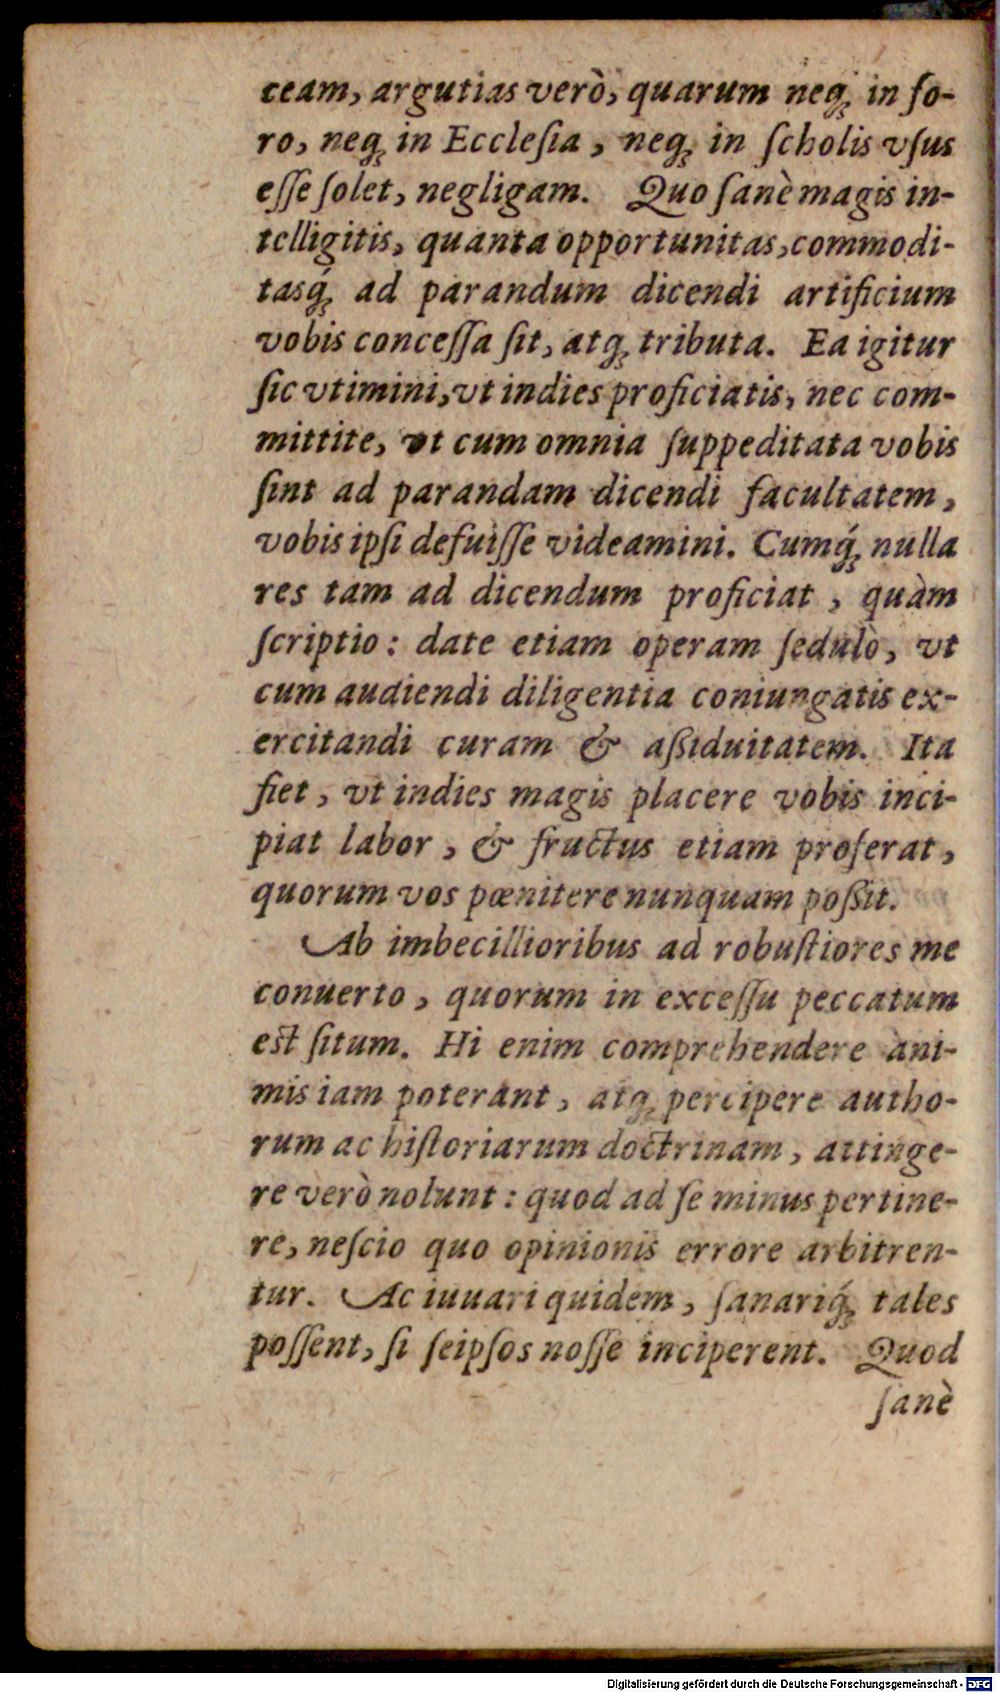 ceam, argutias verò, quarum neq; in fo-
ro, neq; in Eccleſia, neq; in ſcholis vſus
eſſe ſolet, negligam. Quo ſanè magis in-
telligitis, quanta opportunitas, commodi-
tasq́; ad parandum dicendi artificium
vobis conceſſa ſit, atq; tributa. Ea igitur
ſic vtimini, vt indies proficiatis, nec com-
mittite, vt cum omnia ſuppeditata vobis
ſint ad parandam dicendi facultatem,
vobis ipſi defuiſſe videamini. Cumq́; nulla
res tam ad dicendum proficiat, quàm
ſcriptio: date etiam operam ſedulò, vt
cum audiendi diligentia coniungatis ex-
ercitandi curam & aßiduitatem. Ita
fiet, vt indies magis placere vobis inci-
piat labor, & fructus etiam proferat,
quorum vos pœnitere nunquam poßit.
Ab imbecillioribus ad robuſtiores me
conuerto, quorum in exceſſu peccatum
eſt ſitum. Hi enim comprehendere ani-
mis iam poterant, atq; percipere autho-
rum ac hiſtoriarum doctrinam, attinge-
re verò nolunt: quod ad ſe minus pertine-
re, neſcio quo opinionis errore arbitren-
tur. Ac iuuari quidem, ſanariq́; tales
poſſent, ſi ſeipſos noſſe inciperent. Quod
ſanè
Digitalisierung gefördert durch die Deutsche Forschungsgemeinschaft - DFG